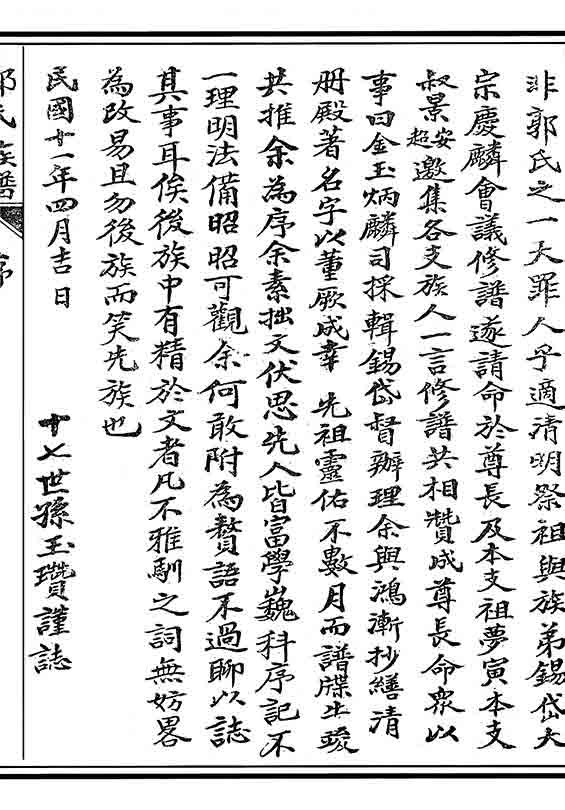 非郭氏之一大罪人乎適清明祭祖與族弟錫岱大
宗慶麟會議修譜遂請命於尊長及本支祖夢寅本支
叔景安超邀集各支族人一言修譜共相贊成尊長命衆以
事曰金玉炳麟司採輯錫岱督辦理余與鴻漸抄繕清
册殿著名字以董厥成幸 先祖靈佑不數月而譜牒告竣
共推余為序余素拙文伏思先人皆富學巍科序記不
一理明法備昭昭可觀余何敢附為贅語不過聊以誌
其事耳俟後族中有精於文者凡不雅馴之詞無妨畧
為改易且勿後族而笑先族也
民國十一年四月吉日 十七世孫玉瓚謹誌
郭氏族譜 序